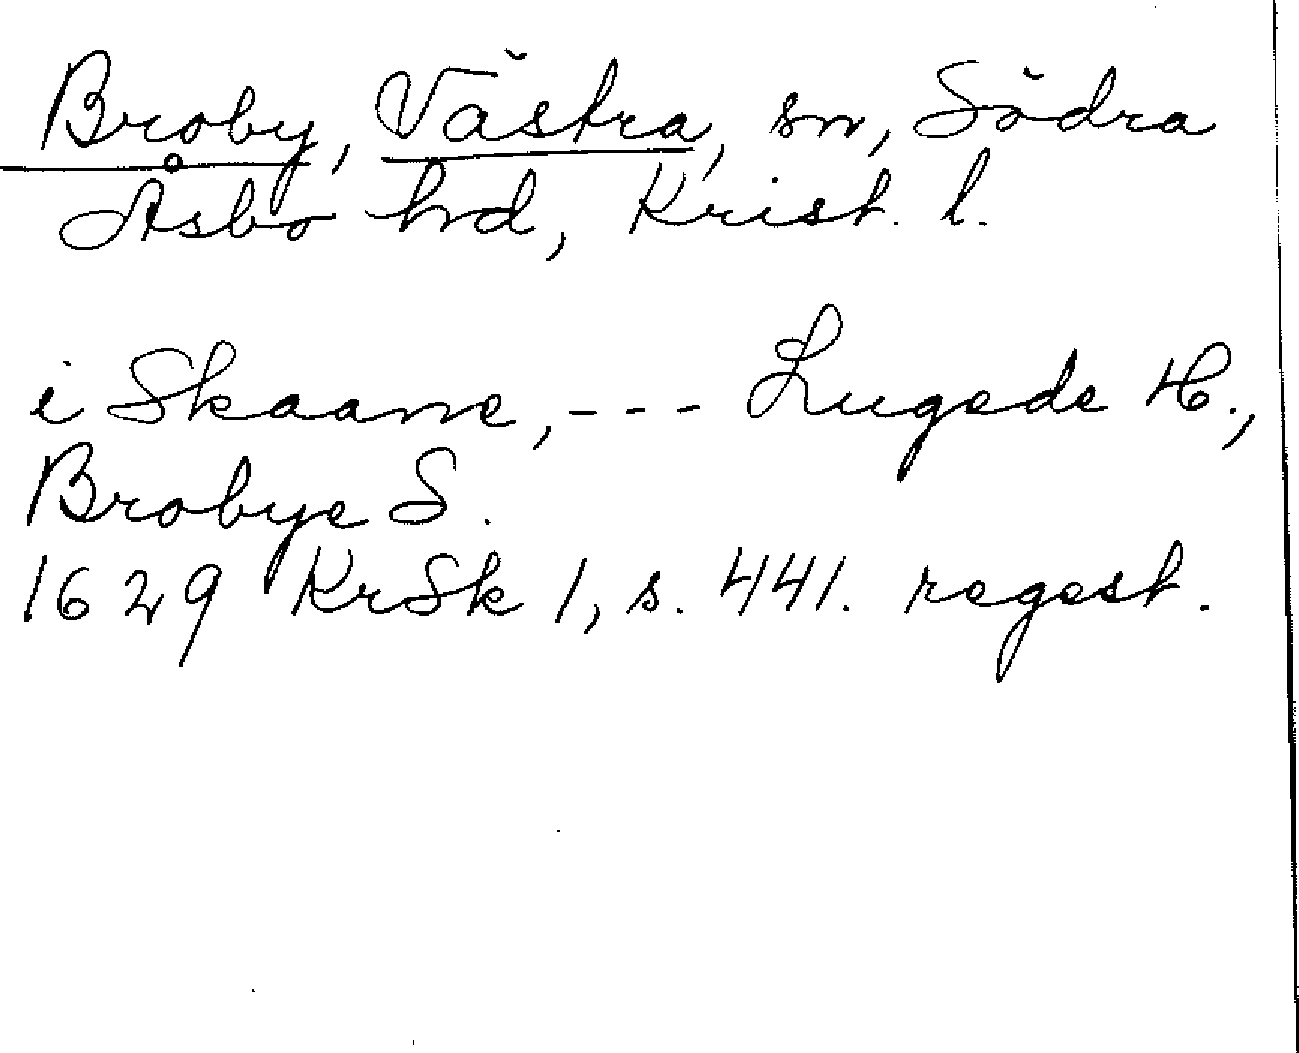 Broby, Västra, sn, Södra
Åsbo hd, Krist. l.
i Skaane, --- Lugede H.,
Brobye S.
1629 KrSk 1, s. 441. regest.